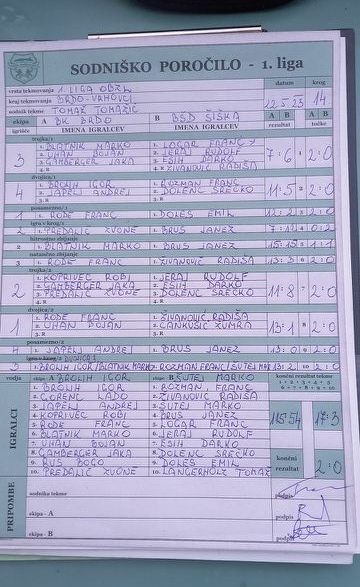 SODNIŠKO POROČILO - 1. liga
datum krog
vrsta tekmovanja 1. LIGA OBZL
kraj tekmovanja BRDO-VRHOVCI
sodnik tekme TOMAŽ TOMAŽIČ 22.5.23 14
ekipa A BK BRDO B BŠD ŠIŠKA A B A B
igrišče IMENA IGRALCEV IMENA IGRALCEV rezultat točke
trojka/1
3 1. BLATNIK MARKO 1. LOGAR FRANC 7:6 2:0
2. UHAN BOJAN 2. JERAJ RUDOLF
3. GAMBERGER JAKA 3. ESIH DARKO
4. R 4. R ŽIVANOVIČ RADIŠA
dvojica/1
4 1. BROLIH IGOR 1. ROZMAN FRANC 11:5 2:0
2. JAPELJ ANDREJ 2. DOLENC SREČKO
3. R 3. R
posamezno/1
1 1. RODE FRANC 1. DOLEŠ EMIL 2:0
2 1. PREDALIČ ZVONE 1. BRUS JANEZ 0:2
hitrostno zbijanje
2 1. BLATNIK MARKO 1. BRUS JANEZ 15:15 1:1
natančno zbijanje
3 1. RODE FRANC 1. ŽIVANOVIČ RADIŠA 2:0
trojka/2
2 1. KOPRIVEC ROBI 1. JERAJ RUDOLF 11:8 2:0
2. GAMBERGER JAKA 2. ESIH DARKO
3. PREDALIČ ZVONE 3. DOLENC SREČKO
4. R 4. R
dvojica/2
1 1. RODE FRANC 1. ŽIVANOVIČ RADIŠA 13:1 2:0
2. UHAN BOJAN 2. CANKUSIČ ZUMRA
3. R 3. R
posamezno/2
4 1. JAPELJ ANDREJ 1. BRUS JANEZ 13:0 2:0
3 BROLIH IGOR/BLATNIK MARKO ROZMAN FRANC/ŠUTEJ MARKO 13:2 2:0
vodja ekipe A BROLIH IGOR ekipe B ŠUTEJ MARKO končni rezultat tekme
1. BROLIH IGOR 1. ROZMAN FRANC
2. GORENC LADO 2. ŽIVANOVIČ RADIŠA
3. JAPELJ ANDREJ 3. ŠUTEJ MARKO
4. KOPRIVEC ROBI 4. BRUS JANEZ 17:3
5. RODE FRANC 5. LOGAR FRANC
6. BLATNIK MARKO 6. JERAJ RUDOLF
IGRALCI
7. UHAN BOJAN 7. ESIH DARKO
8. GAMBERGER JAKA 8. DOLENC SREČKO končni
9. RUS BOGO 9. DOLEŠ EMIL rezultat 2:0
10. PREDALIČ ZVONE 10. LANGERHOLZ TOMAŽ
PRIPOMBE
sodnika tekme podpis
ekipa - A podpis
ekipa - B podpis